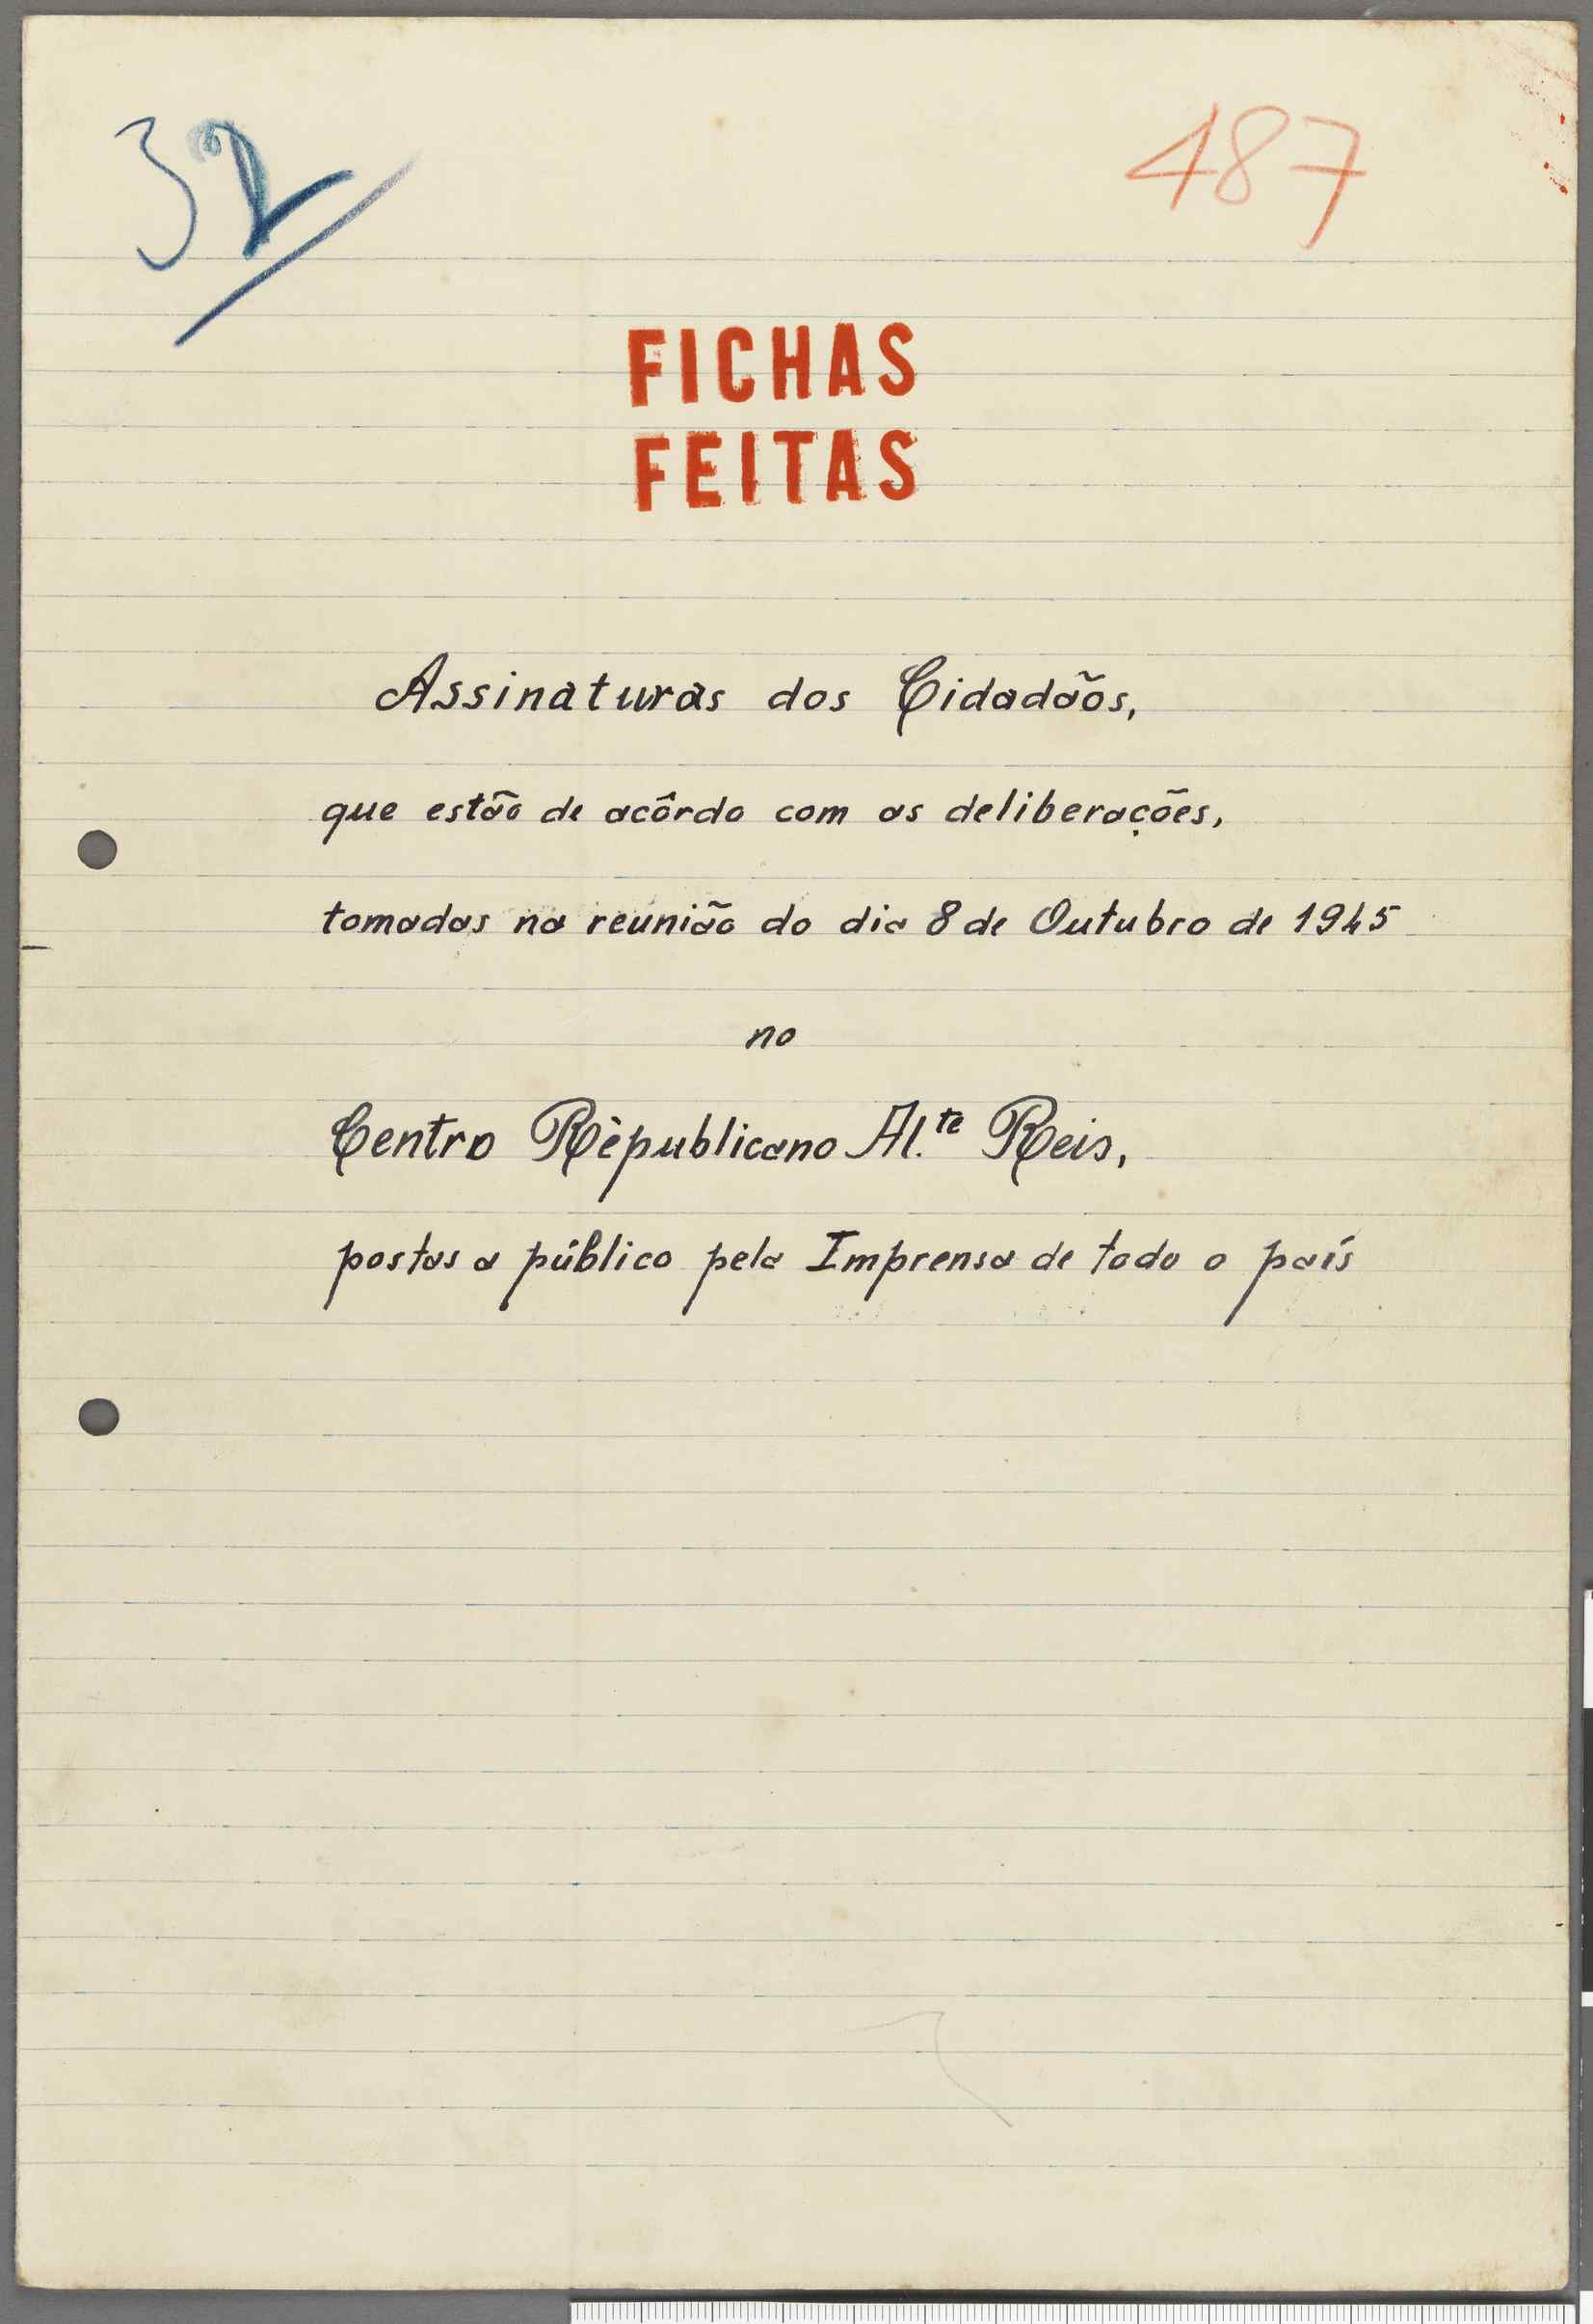 32
487
FICHAS
FEITAS
Assinaturas dos Cidadãos,
que estão de acôrdo com as deliberações,
tomadas na reunião do dia 8 de Outubro de 1945
no
Centro Rèpublicano Al.te Reis,
postas a público pela Imprensa de todo o país